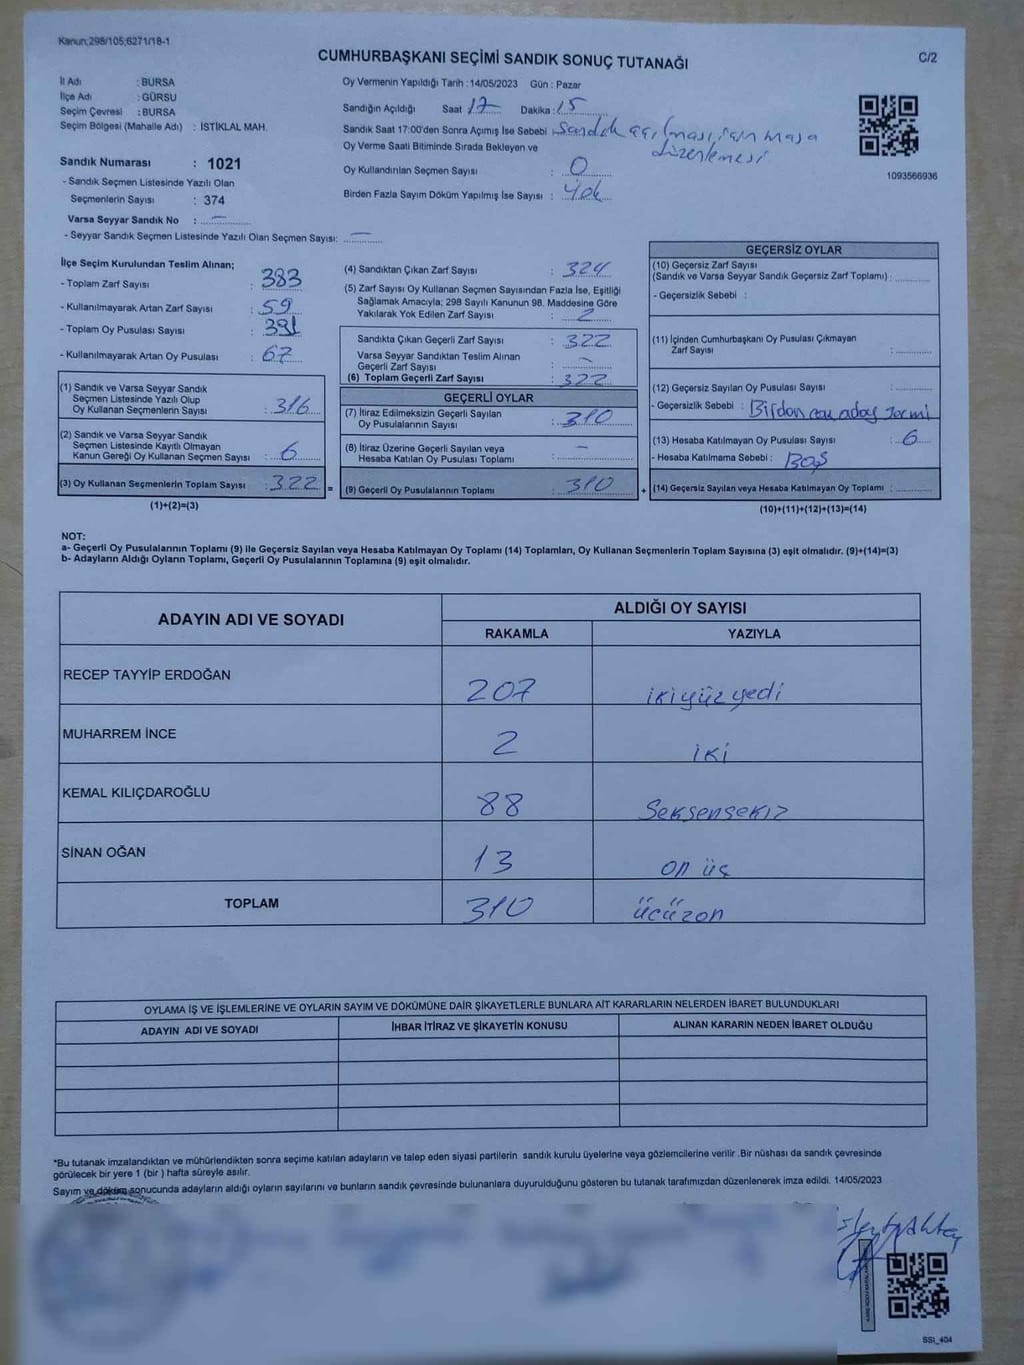 Kanun;298/105;6271/18-1
CUMHURBAŞKANI SEÇİMİ SANDIK SONUÇ TUTANAĞI
C/2
İl Adı : BURSA
İlçe Adı : GÜRSU
Seçim Çevresi : BURSA
Seçim Bölgesi (Mahalle Adı) : İSTİKLAL MAH.
Sandık Numarası : 1021
- Sandık Seçmen Listesinde Yazılı Olan
Seçmenlerin Sayısı : 374
Varsa Seyyar Sandık No : –
- Seyyar Sandık Seçmen Listesinde Yazılı Olan Seçmen Sayısı: –
Oy Vermenin Yapıldığı Tarih :14/05/2023 Gün : Pazar
Sandığın Açıldığı Saat : 17 Dakika : 15
Sandık Saat 17:00'den Sonra Açımış İse Sebebi : Sandık açılması için masa
düzenlemesi
Oy Verme Saati Bitiminde Sırada Bekleyen ve
Oy Kullandırılan Seçmen Sayısı : 0
Birden Fazla Sayım Döküm Yapılmış İse Sayısı : Yok
1093566936
İlçe Seçim Kurulundan Teslim Alınan;
- Toplam Zarf Sayısı : 383
- Kullanılmayarak Artan Zarf Sayısı : 59
- Toplam Oy Pusulası Sayısı : 391
- Kullanılmayarak Artan Oy Pusulası : 67
(1) Sandık ve Varsa Seyyar Sandık
Seçmen Listesinde Yazılı Olup
Oy Kullanan Seçmenlerin Sayısı : 316
(2) Sandık ve Varsa Seyyar Sandık
Seçmen Listesinde Kayıtlı Olmayan
Kanun Gereği Oy Kullanan Seçmen Sayısı : 6
(3) Oy Kullanan Seçmenlerin Toplam Sayısı : 322 =
(1)+(2)=(3)
(4) Sandıktan Çıkan Zarf Sayısı : 324
(5) Zarf Sayısı Oy Kullanan Seçmen Sayısından Fazla İse, Eşitliği
Sağlamak Amacıyla; 298 Sayılı Kanunun 98. Maddesine Göre
Yakılarak Yok Edilen Zarf Sayısı : 2
Sandıkta Çıkan Geçerli Zarf Sayısı : 322
Varsa Seyyar Sandıktan Teslim Alınan
Geçerli Zarf Sayısı : –
(6) Toplam Geçerli Zarf Sayısı : 322
GEÇERLİ OYLAR
(7) İtiraz Edilmeksizin Geçerli Sayılan
Oy Pusulalarının Sayısı : 310
(8) İtiraz Üzerine Geçerli Sayılan veya
Hesaba Katılan Oy Pusulası Toplamı : –
(9) Geçerli Oy Pusulalarının Toplamı : 310 +
GEÇERSİZ OYLAR
(10) Geçersiz Zarf Sayısı
(Sandık ve Varsa Seyyar Sandık Geçersiz Zarf Toplamı) :
- Geçersizlik Sebebi :
(11) İçinden Cumhurbaşkanı Oy Pusulası Çıkmayan
Zarf Sayısı :
(12) Geçersiz Sayılan Oy Pusulası Sayısı :
- Geçersizlik Sebebi : Birden çok aday
(13) Hesaba Katılmayan Oy Pusulası Sayısı : 6
- Hesaba Katılmama Sebebi : Boş
(14) Geçersiz Sayılan veya Hesaba Katılmayan Oy Toplamı :
(10)+(11)+(12)+(13)=(14)
NOT:
a- Geçerli Oy Pusulalarının Toplamı (9) ile Geçersiz Sayılan veya Hesaba Katılmayan Oy Toplamı (14) Toplamları, Oy Kullanan Seçmenlerin Toplam Sayısına (3) eşit olmalıdır. (9)+(14)=(3)
b- Adayların Aldığı Oyların Toplamı, Geçerli Oy Pusulalarının Toplamına (9) eşit olmalıdır.
ADAYIN ADI VE SOYADI
ALDIĞI OY SAYISI
RAKAMLA YAZIYLA
RECEP TAYYİP ERDOĞAN 207 ikiyüzyedi
MUHARREM İNCE 2 iki
KEMAL KILIÇDAROĞLU 88 Seksensekiz
SİNAN OĞAN 13 on üç
TOPLAM 310 üçüzon
OYLAMA İŞ VE İŞLEMLERİNE VE OYLARIN SAYIM VE DÖKÜMÜNE DAİR ŞİKAYETLERLE BUNLARA AİT KARARLARIN NELERDEN İBARET BULUNDUKLARI
ADAYIN ADI VE SOYADI İHBAR İTİRAZ VE ŞİKAYETİN KONUSU ALINAN KARARIN NEDEN İBARET OLDUĞU
*Bu tutanak imzalandıktan ve mühürlendikten sonra seçime katılan adayların ve talep eden siyasi partilerin sandık kurulu üyelerine veya gözlemcilerine verilir .Bir nüshası da sandık çevresinde
görülecek bir yere 1 (bir ) hafta süreyle asılır.
Sayım ve döküm sonucunda adayların aldığı oyların sayılarını ve bunların sandık çevresinde bulunanlara duyurulduğunu gösteren bu tutanak tarafımızdan düzenlenerek imza edildi. 14/05/2023
SSt_404